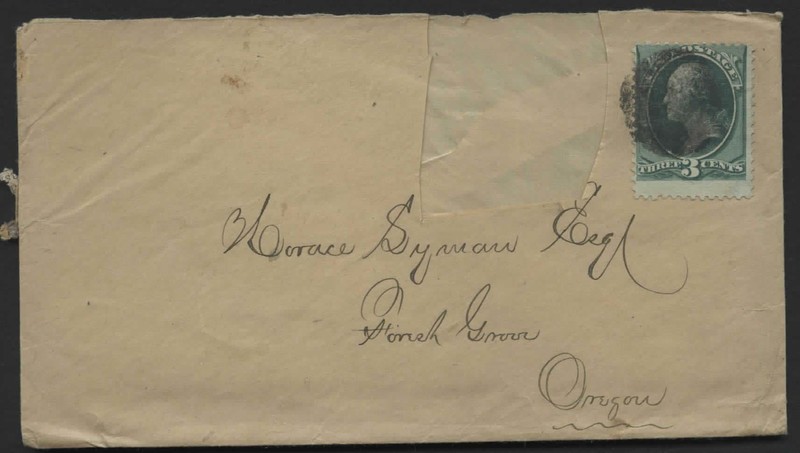 POSTAGE
THREE 3 CENTS
Horace Lyman Esq
Forest Grove
Oregon